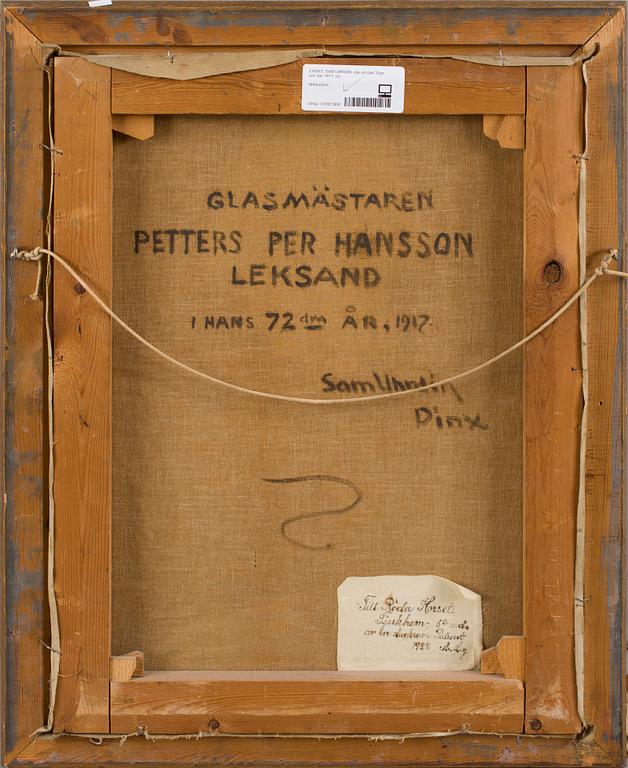 SAM UHRDIN
GLASMÄSTAREN
PETTERS PER HANSSON
LEKSAND
I HANS 72 dra ÅR, 1917.
Sam Uhrdin
Pinx
Till Röda Korsets
Sjukhem,
av en tacksam Patient
1928